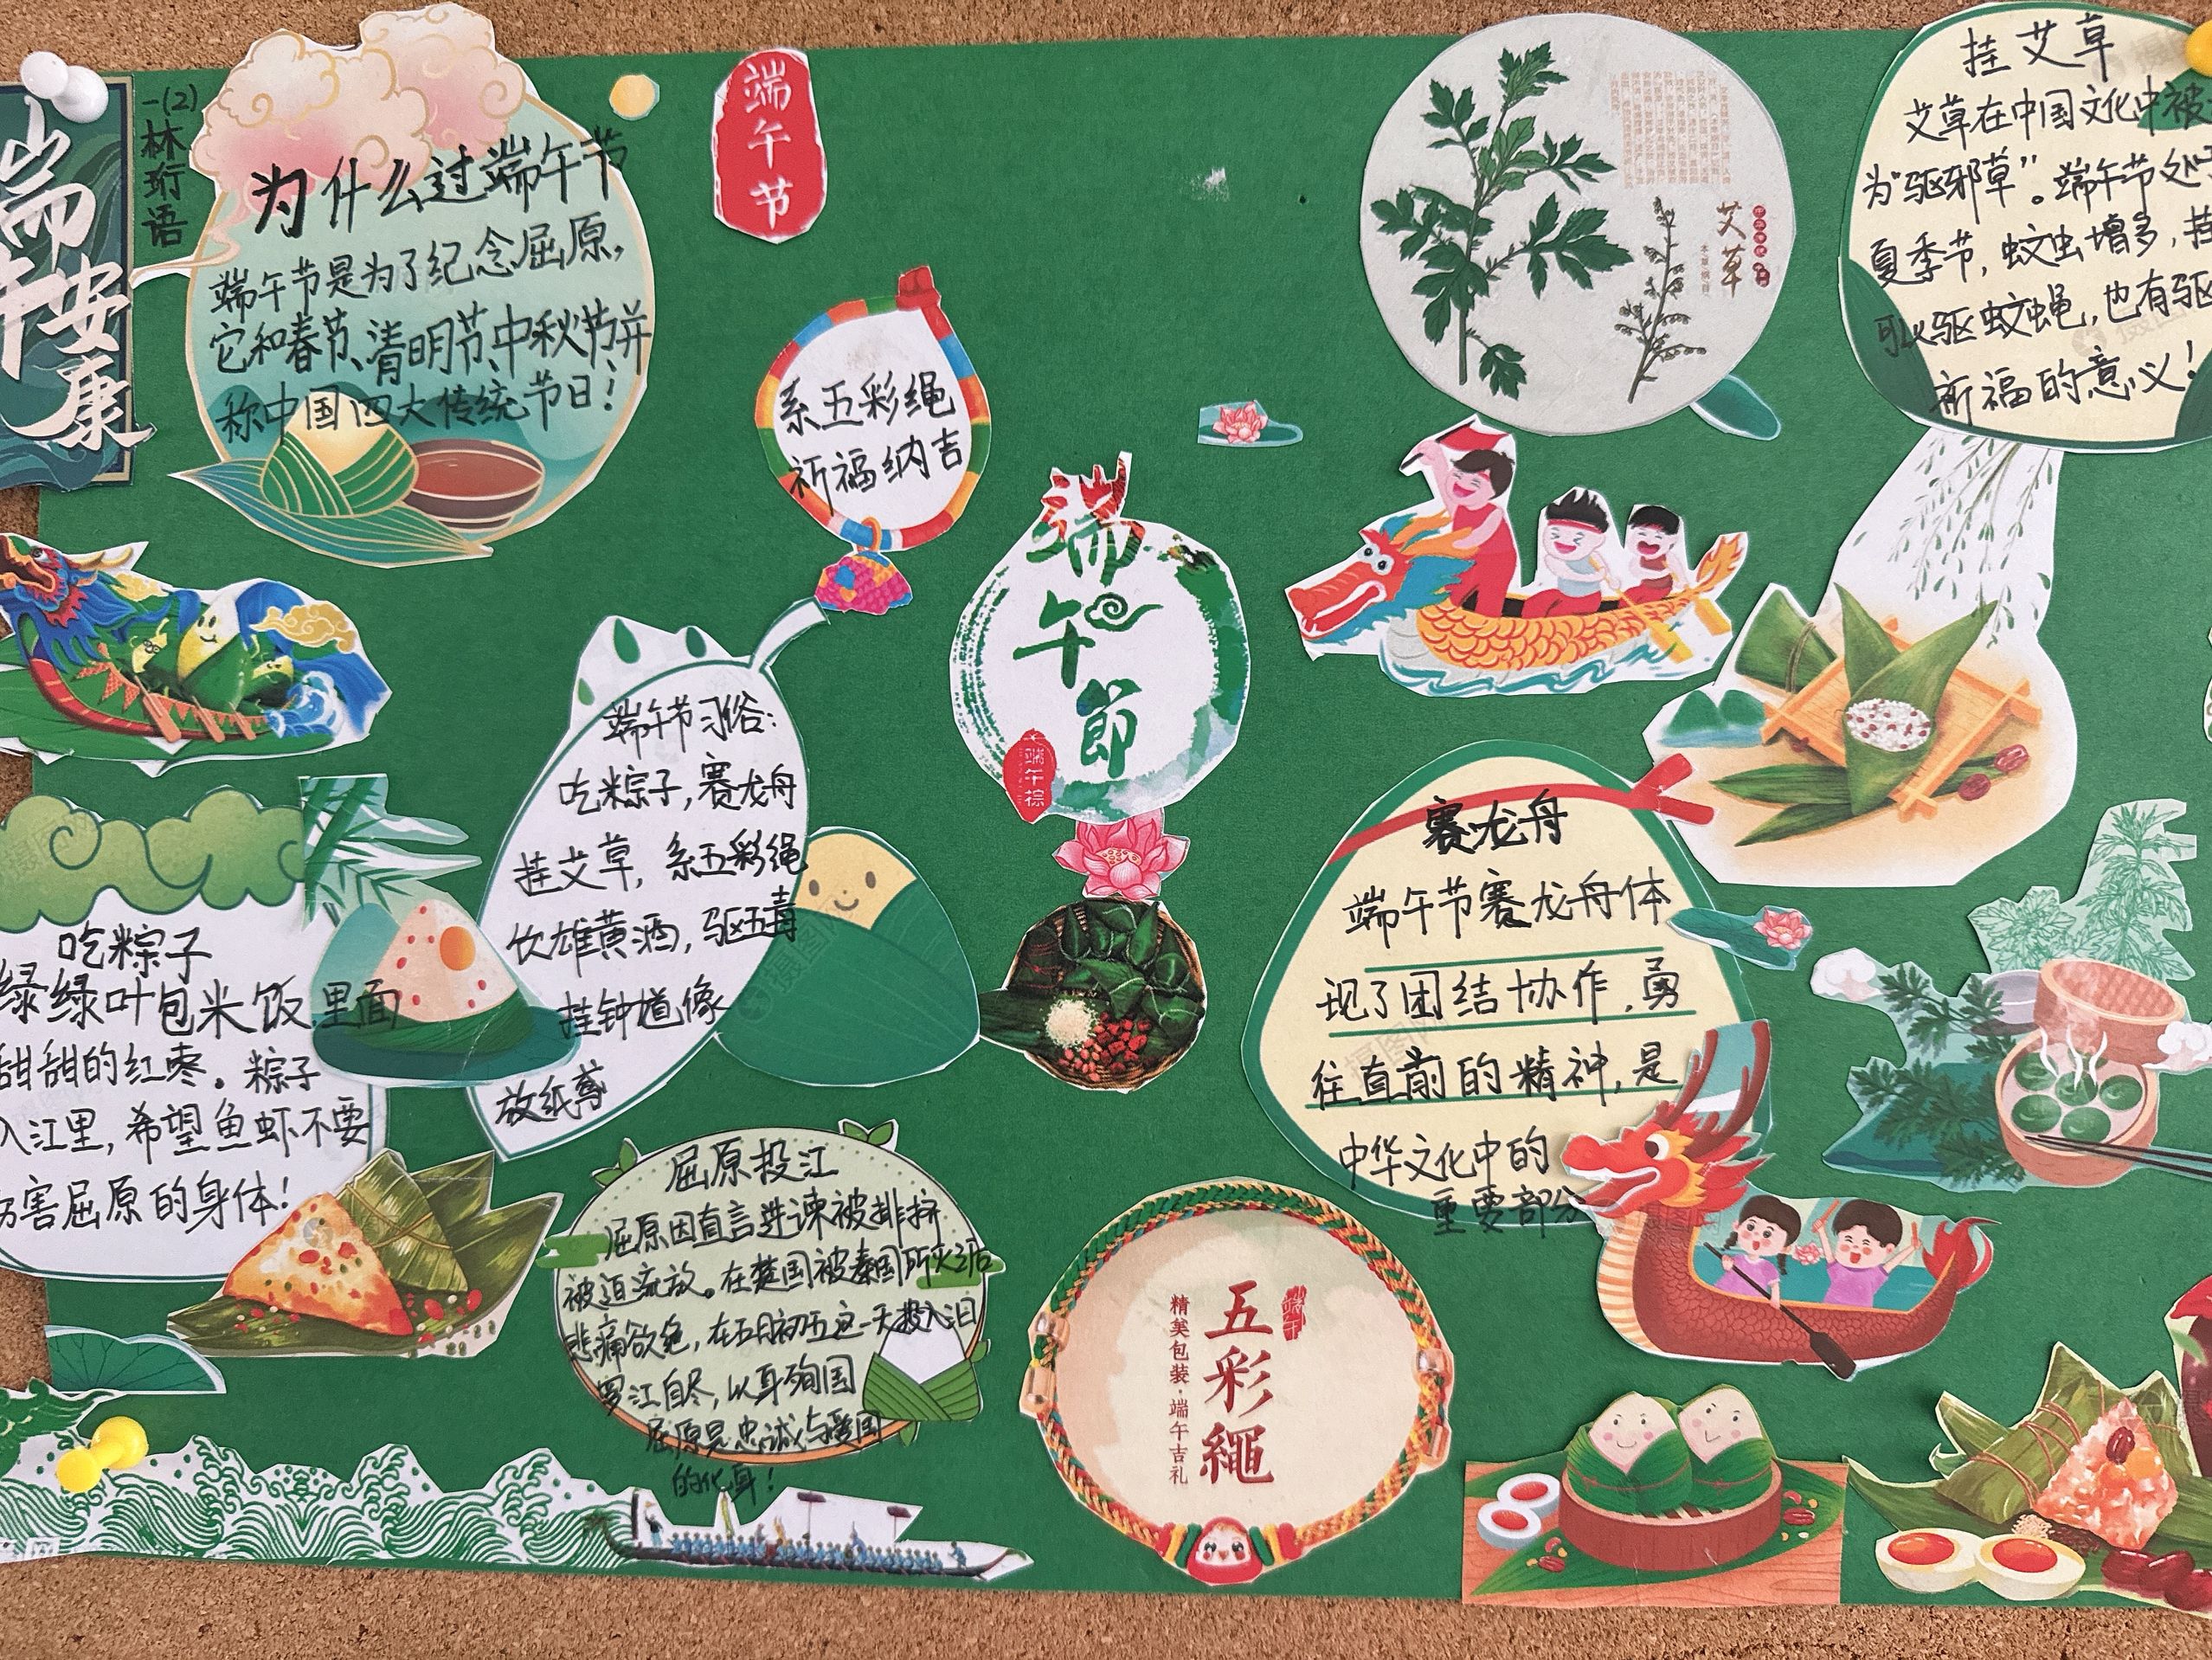 端午安康
一(2)
林珩语
为什么过端午节
端午节是为了纪念屈原,
它和春节、清明节、中秋节并
称中国四大传统节日!
端午节
系五彩绳
祈福纳吉
艾草
挂艾草
艾草在中国文化中被
为"驱邪草"。端午节处于
夏季节,蚊虫增多,挂
可以驱蚊蝇,也有驱
祈福的意义!
端午節
端午粽
端午节习俗:
吃粽子,赛龙舟
挂艾草,系五彩绳
饮雄黄酒,驱五毒
挂钟馗像
放纸鸢
吃粽子
绿绿叶包米饭里面
甜甜的红枣。粽子
入江里,希望鱼虾不要
伤害屈原的身体!
屈原投江
屈原因直言进谏被排挤
被迫流放。在楚国被秦国所灭之后
悲痛欲绝,在五月初五这一天投入汨
罗江自尽,以身殉国
屈原是忠诚与爱国
的化身!
赛龙舟
端午节赛龙舟体
现了团结协作,勇
往直前的精神,是
中华文化中的
重要部分
五彩繩
精美包装·端午吉礼